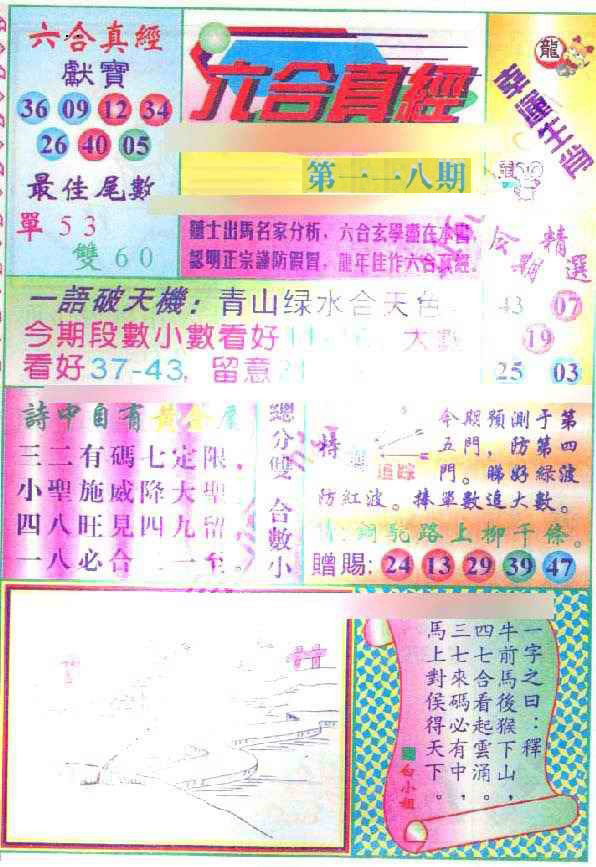 六合真經
獻寶
36 09 12 34
26 40 05
最佳尾數
單 5 3
雙 6 0
六合真經
第一一八期
龍
幸運生肖
鼠
隨士出馬名家分析，六合玄學盡在本書
認明正宗謹防假冒，龍年佳作六合真經.
精選
43 07
19
25 03
一語破天機：青山绿水合天色
今期段數小數看好 大數
看好37-43，留意
詩中自有黃金屋
三二有碼七定限。
小聖施威降大聖
四八旺見四九留
一八必合二一至。
總分雙 合數小
特
追踪
今期預測于第
五門，防第四
門。睇好綠波
防紅波。捧單數追大數。
銅駝路上柳千條。
贈賜: 24 13 29 39 47
一字之曰：釋
牛前馬後猴下山，
四七合看起雲涌。
三七來碼必有中，
馬上對侯得天下。
白小姐